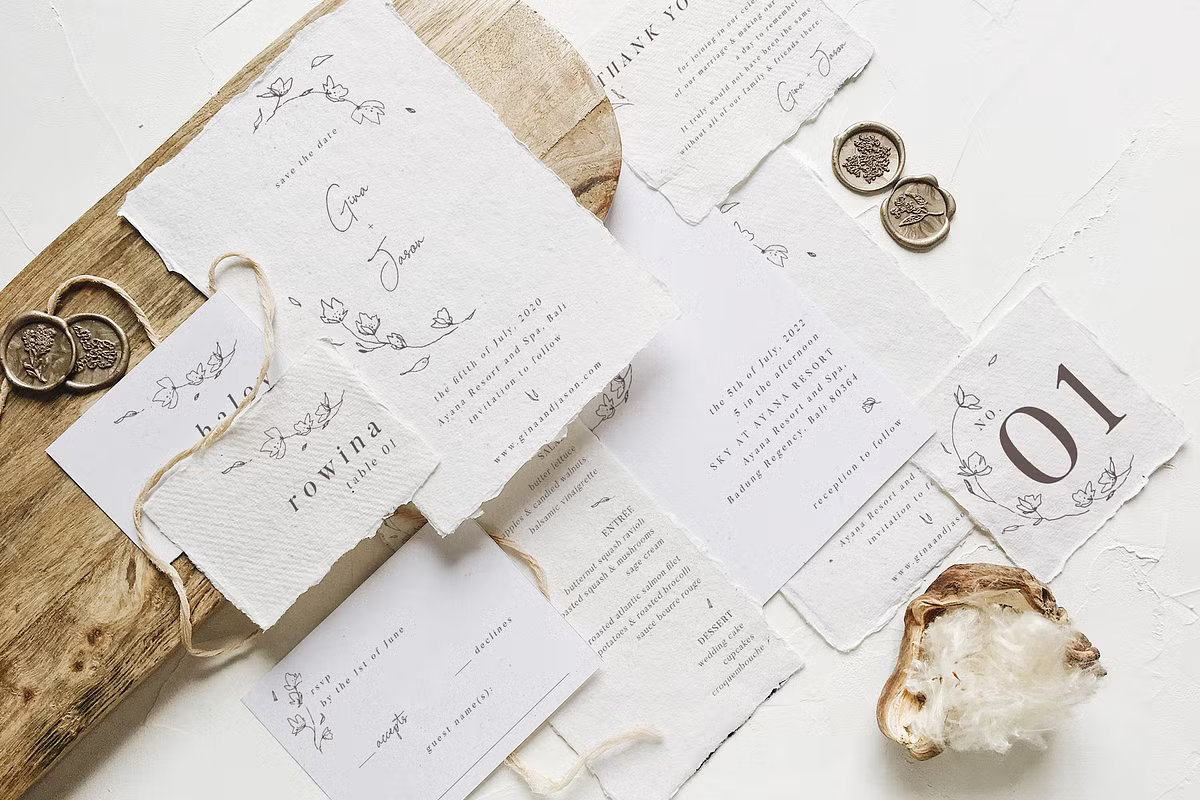 save the date
Gina
+
Jason
the fifth of July, 2020
Ayana Resort and Spa, Bali
invitation to follow
www.ginaandjason.com
THANK YO
for joining in our cele
of our marriage & making our
a day to remember
It truly would not have been the same
without all of our family & friends there.
Gina + Jason
the 5th of July, 2022
5 in the afternoon
SKY AT AYANA RESORT
Ayana Resort and Spa,
Badung Regency, Bali 80364
reception to follow
NO.
01
Ayana Resort and
invitation to
www.ginaandjaso
haley
rowina
table 01
butter lettuce
apples & candied walnuts
balsamic vinaigrette
ENTRÉE
butternut squash ravioli
roasted squash & mushrooms
sage cream
roasted atlantic salmon filet
potatoes & roasted brocolli
sauce beurre rouge
DESSERT
wedding cake
cupcakes
croquembouche
rsvp
by the 1st of June
accepts
declines
guest name(s):